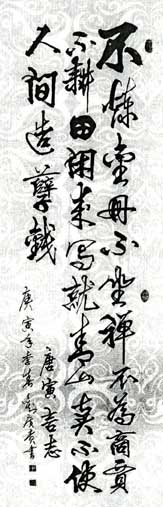 不煉金丹不坐禪不為商賈
不耕田閑来写就青山賣不使
人間造孽錢
唐寅言志
庚寅年書